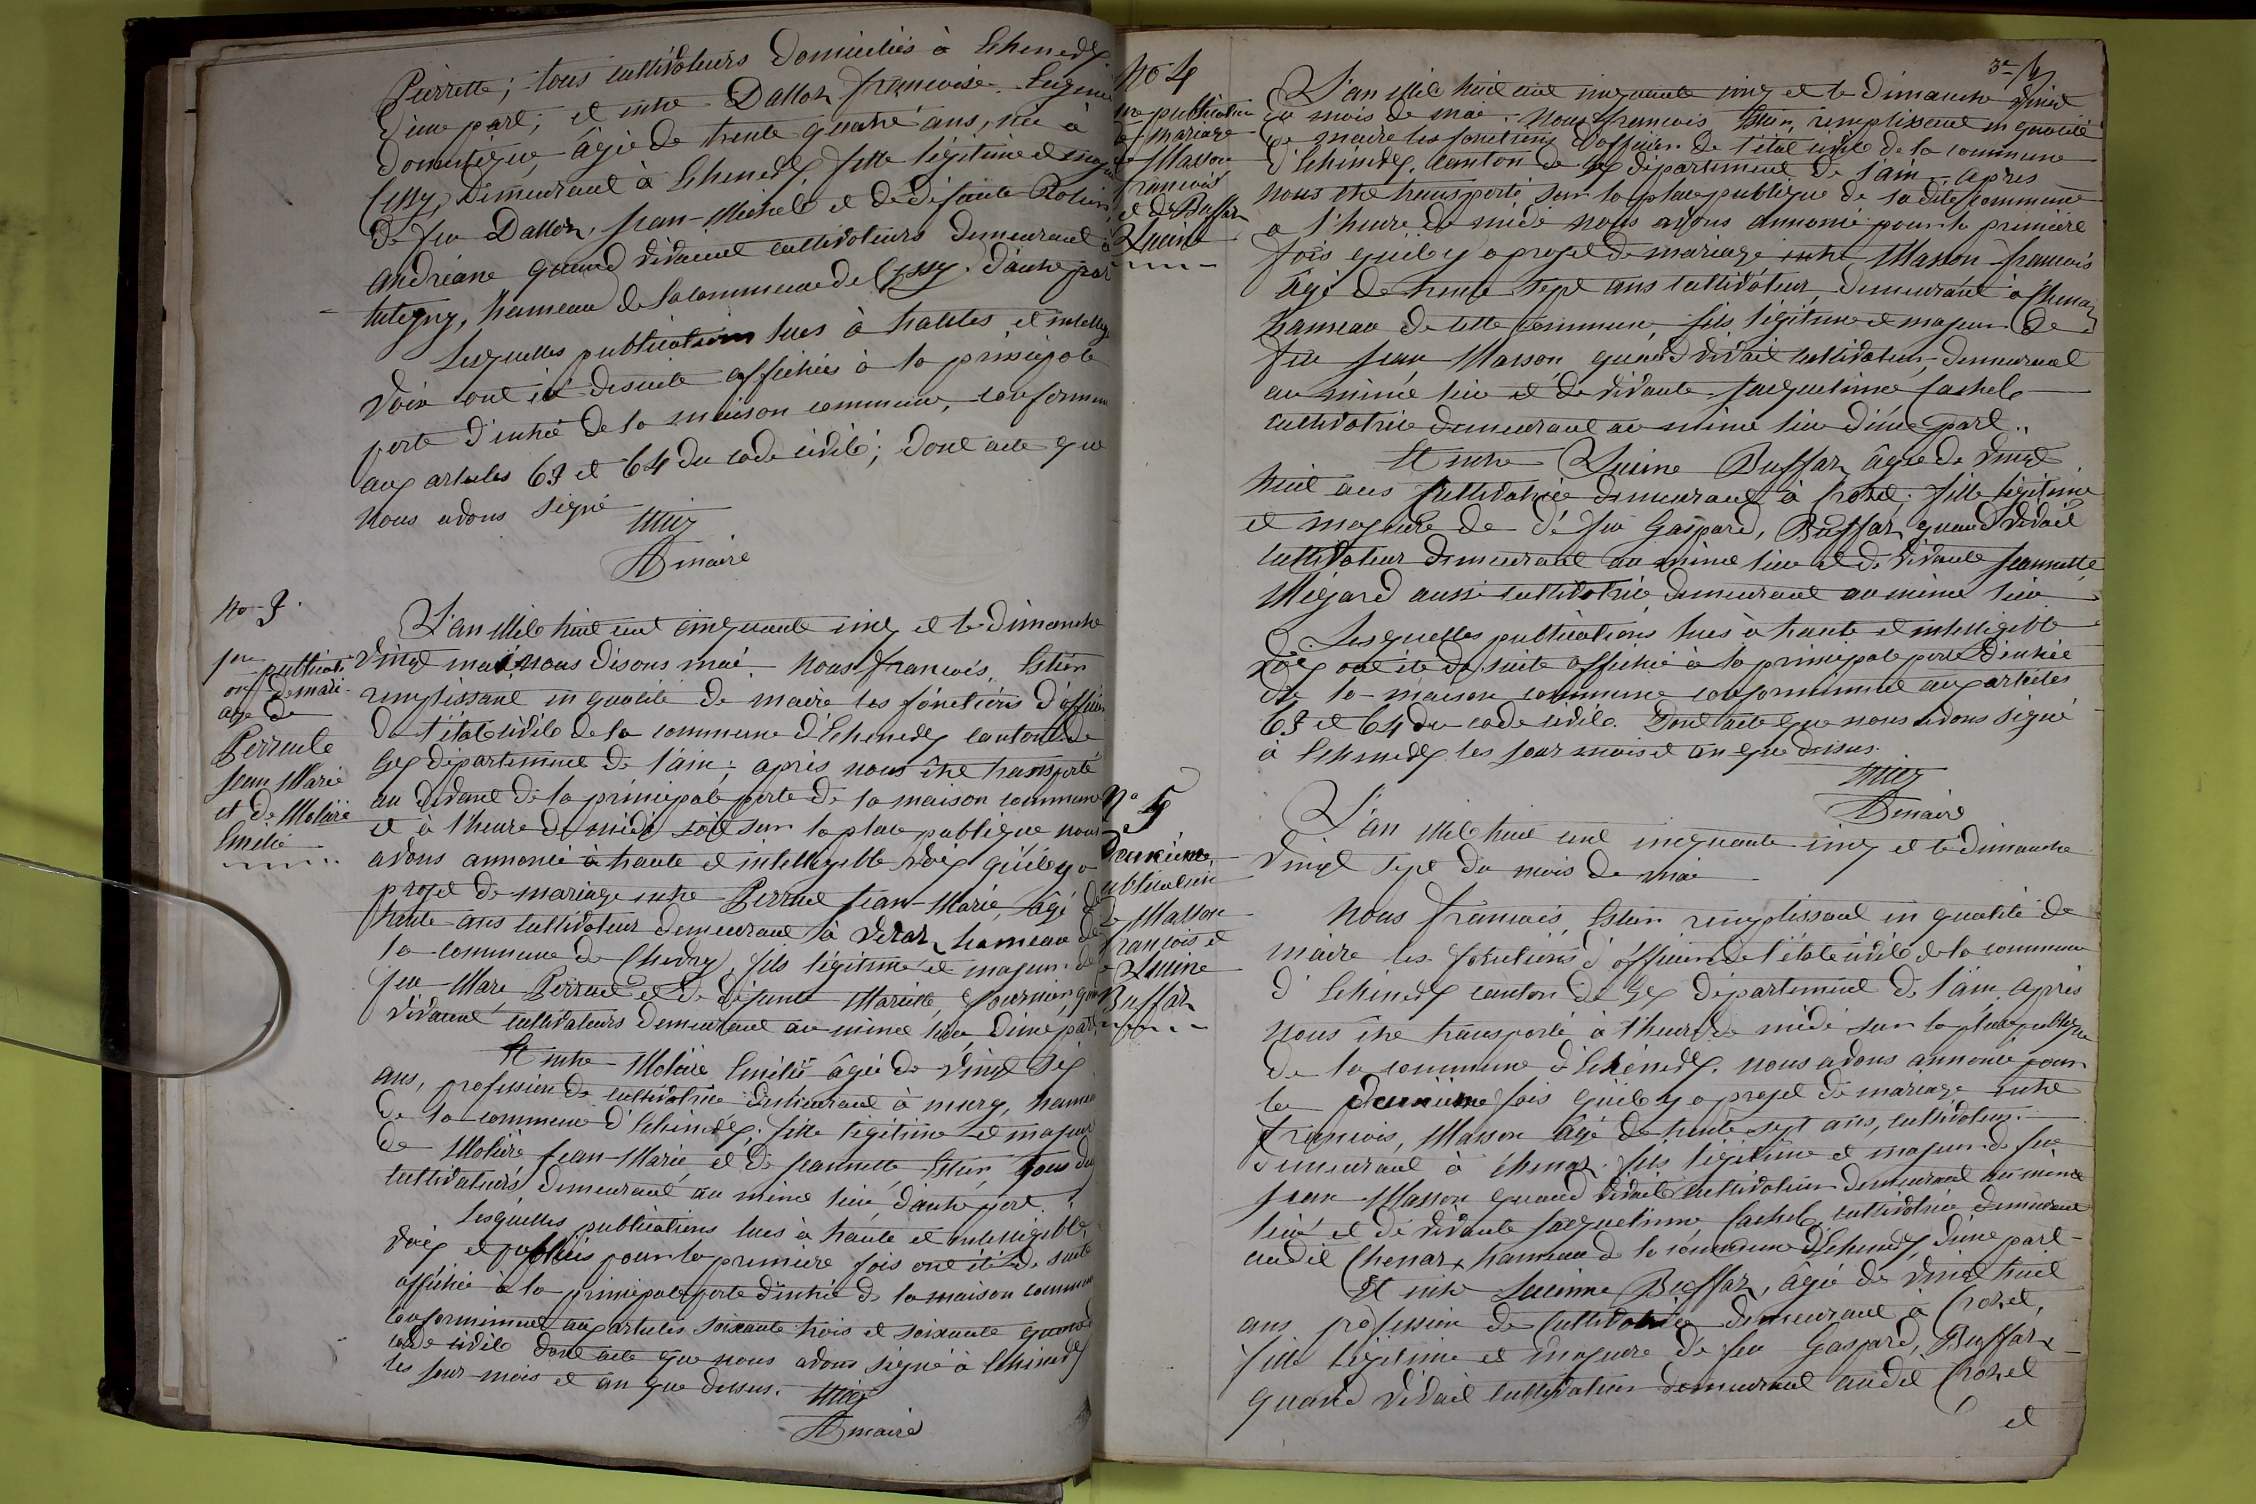 Pierrette; tous cultivateurs domiciliés à Echenevex
d'une part; et entre Dalloz françoise. Eugénie
domestique, âgée de trente quatre ans, née à
Cessy, demeurant à Echenevex fille légitime et majeure
de feu Dalloz, Jean-Michel et de défunte
Andréane quand vivaient cultivateurs demeurant à
hameau de la commune de Cessy. d'autre part
Lesquelles publications lues à hautes et intelligi
voix ont été desuite affichées à la principale
porte d'entrée de la maison commune, conformém
aux articles 63 et 64 du code civile; dont acte que
nous avons signé
maire
No 3.
1ere publicati
on de mari-
age de
Perruel
Jean Marie
et de Molière
Emélie
L'an Mile huit cent cinquante cinq et le dimanche
vingt mai, nous disons mai. Nous françois, Estier
remplissant en qualité de maire les fonctions d'officier
de l'état civile de la commune d'Echenevex canton de
Gex département de l'ain; après nous être transporté
au devant de la principale porte de la maison commune
et à l'heure de midi soit sur la place publique nous
avons annoncé à haute et intelligible voix qu'il y a
projet de mariage entre Perruel Jean-Marie, âgé de
trente ans cultivateur demeurant à Veraz hameau de
la commune de Chevry, fils légitime et majeur de
feu Marc Perruel et de défunte Mariette, Fournier, quand
vivaient cultivateurs demeurant au même lieu, d'une part,
Et entre Molière Emélie âgée de vingt six
ans, profession de cultivatrice demeurant à mury, hameau
de la commune d'Echenevex; fille légitime et majeure
de Molière Jean-Marie et de Jeannette Estier, tous deux
cultivateurs demeurant au même lieu, d'autre part.
Lesquelles publications lues à haute et intelligible
voix et publiés pour la première fois ont été de suite
affichée à la principale porte d'entrée de la maison commune
conformément aux articles soixante trois et soixante quatre du
code civile dont acte que nous avons signé à Echenevex
les jour mois et an que dessus.
maire
No 4
1re publication
de mariage
de Masson
françois
et de Buffaz
Lucine
L'an Mile huit cent cinquante cinq et le dimanche vingt
du mois de mai. Nous françois Estier, remplissant en qualité
de maire les fonctions d'officier de l'état civile de la commune
d'Echenevex, canton de Gex département de l'ain. après
nous être transporté sur la place publique de la dite commune
a l'heure de midi nous avons annoncé pour la première
fois qu'il y a projet de mariage entre Masson françois
âgé de trente sept ans cultivateur, demeurant à Chenaz
hameau de cette commune, fils légitime et majeur de
feu Jean Masson, quand vivait cultivateur, demeurant
au même lieu et de vivante Jacqueline Cachel
cultivatrice demeurant au même lieu d'une part..
Et entre Lucine Buffaz, âgée de vingt
huit ans Cultivatrice demeurant à Crozet, fille légitime
et majeure de dé feu Gaspard, Buffaz quand vivait
cultivateur demeurant au même lieu et de vivante Jeannette
Mégard aussi cultivatrice demeurant au même lieu
Lesquelles publications lues à haute et intelligible
voix ont été de suite affiché à la principale porte d'entrée
de la maison commune conformément aux articles
63 et 64 du code civile. Dont acte que nous avons signé
à Echenevex les jour mois et an que dessus.
maire
No 5
Deuxième
publication
de Masson
françois et
de Lucine
Buffaz
L'an Mile huit cent cinquante cinq et le dimanche
vingt sept du mois de mai
Nous françois, Estier remplissant en qualité de
maire les fonctions d'officier de l'état civile de la commune
d'Echenevex canton de Gex département de l'ain. après
nous être transporté à l'heure de midi sur la place publique
de la commune d'Echenevex. nous avons annoncé pour
la deuxième fois qu'il y a projet de mariage entre
françois, Masson âgé de trente sept ans, cultivateur.
demeurant à Chenaz. fils légitime et majeur de feu
Jean Masson quand vivait cultivateur demeurant au même
lieu et de vivante Jacqueline Cachel, cultivatrice demeurant
audit Chenaz, hameau de la commune d'Echenevex, d'une part-
Et entre Lucinne Buffaz, âgée de vingt huit
ans profession de Cultivatrice demeurant à Crozet,
fille légitime et majeure de feu Gaspard, Buffaz
quand vivait cultivateur demeurant audit Crozet
et